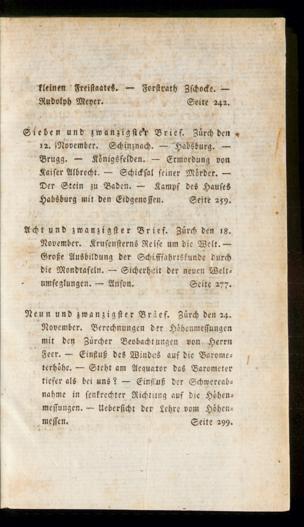 kleinen Freistaates. — Forstrath Zschocke. —
Rudolph Meyer. Seite 242.
Sieben und zwanzigster Brief. Zürch den
12. November. Schinznach. — Habsburg. —
Brugg. — Königsfelden. — Ermordung von
Kaiser Albrecht. — Schicksal seiner Mörder. —
Der Stein zu Baden. — Kampf des Hauses
Habsburg mit den Eidgenossen. Seite 259.
Acht und zwanzigster Brief. Zürch den 18.
November. Krusensterns Reise um die Welt. —
Große Ausbildung der Schifffahrtskunde durch
die Mondtafeln. — Sicherheit der neuen Welt-
umseglungen. — Anson. Seite 277.
Neun und zwanzigster Brief. Zürch den 24.
November. Berechnungen der Höhenmessungen
mit den Zürcher Beobachtungen von Herrn
Feer. — Einfluß des Windes auf die Barome-
terhöhe. — Steht am Aequator das Barometer
tiefer als bei uns? — Einfluß der Schwereab-
nahme in senkrechter Richtung auf die Höhen-
messungen. — Uebersicht der Lehre vom Höhen-
messen. Seite 299.